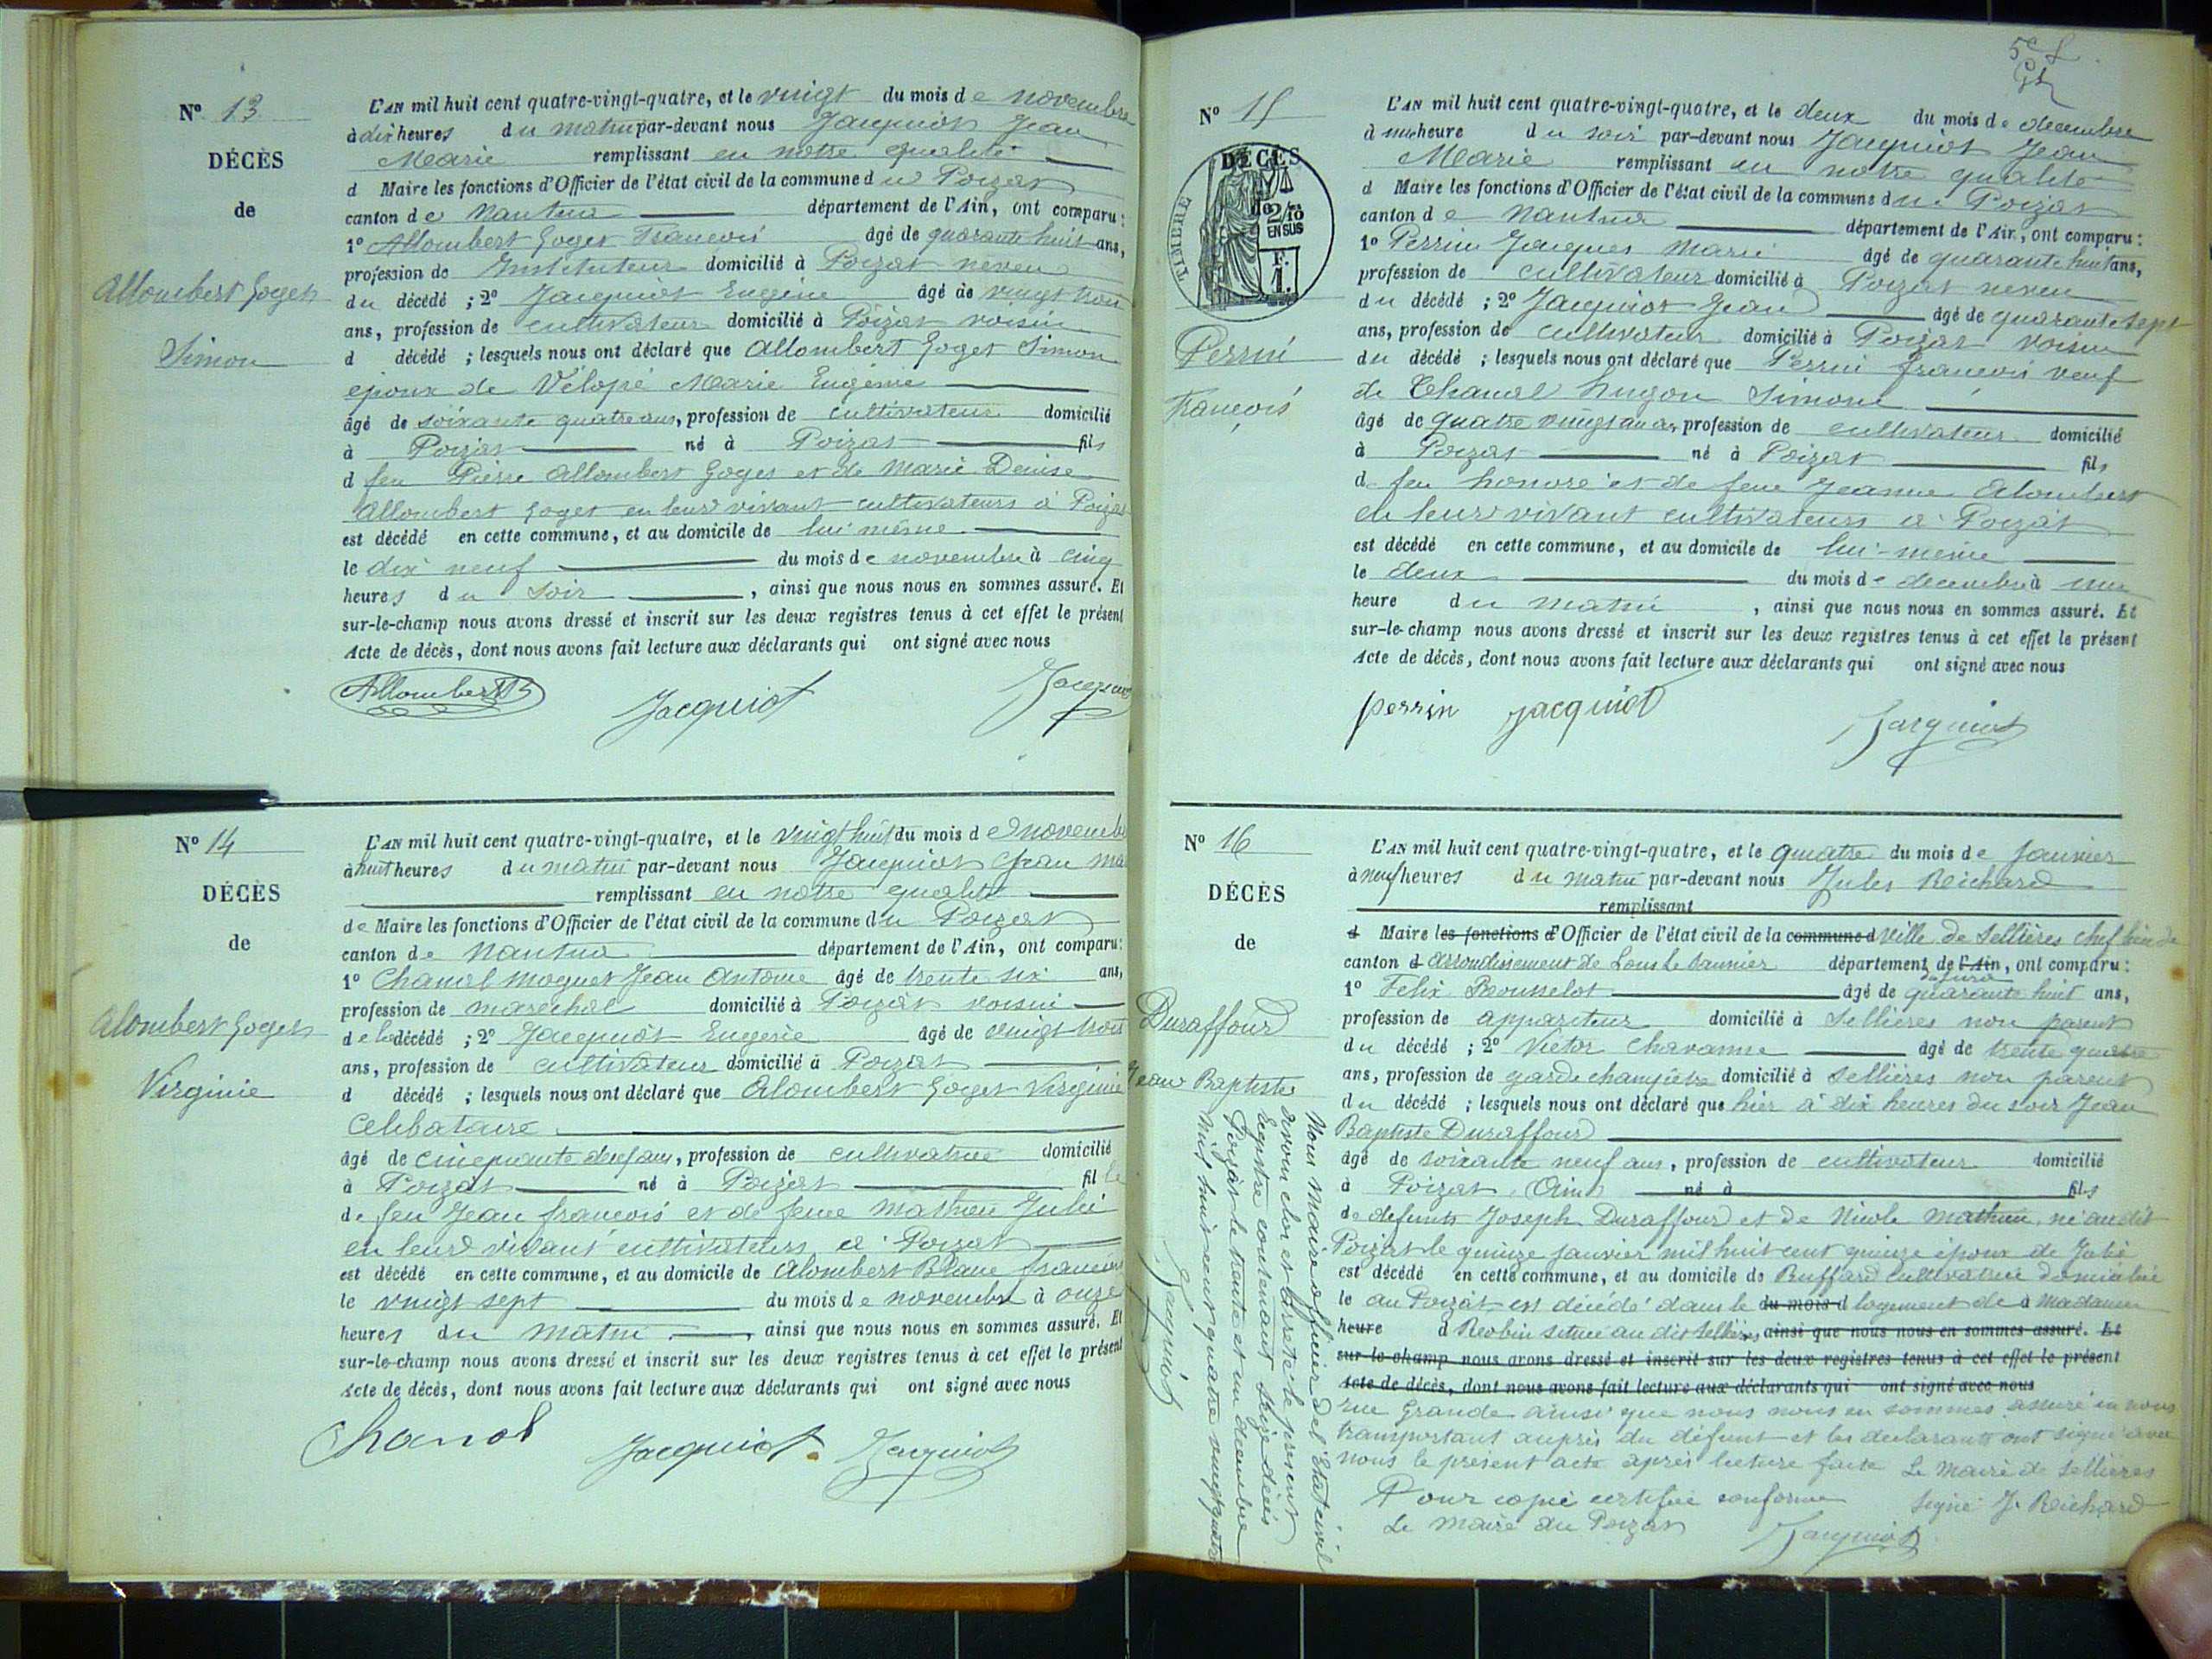 N° 13
DÉCÈS
de
Allombert Goget
Simon
L'AN mil huit cent quatre-vingt-quatre, et le vingt du mois de novembre
à dix heures du matin par-devant nous Jacquiot Jean
Marie remplissant en notre qualité
d Maire les fonctions d'Officier de l'état civil de la commune du Poizat
canton de Nantua département de l'Ain, ont comparu :
1° Allombert Goget François âgé de quarante huit ans,
profession de Instituteur domicilié à Poizat neveu
du décédé ; 2° Jacquiot Eugène âgé de vingt trois
ans, profession de cultivateur domicilié à Poizat voisin
d décédé ; lesquels nous ont déclaré que Allombert Goget Simon
époux de Vélopé Marie Eugénie
âgé de soixante quatre ans, profession de cultivateur domicilié
à Poizat né à Poizat fils
d feu Pierre Allombert Goget et de Marie Denise
Allombert Goget en leur vivant cultivateurs à Poizat
est décédé en cette commune, et au domicile de lui même
le dix neuf du mois de novembre à cinq
heures du soir, ainsi que nous nous en sommes assuré. Et
sur-le-champ nous avons dressé et inscrit sur les deux registres tenus à cet effet le présent
Acte de décès, dont nous avons fait lecture aux déclarants qui ont signé avec nous
Allombert Jacquiot Jacquiot
N° 14
DÉCÈS
de
Alombert Goget
Virginie
L'AN mil huit cent quatre-vingt-quatre, et le vingt huit du mois de novembre
à huit heures du matin par-devant nous Jacquiot Jean Ma
remplissant en notre qualité
de Maire les fonctions d'Officier de l'état civil de la commune du Poizat
canton de Nantua département de l'Ain, ont comparu :
1° Chanal Moquet Jean Antoine âgé de trente six ans,
profession de maréchal domicilié à Poizat voisin
de la décédé ; 2° Jacquiot Eugène âgé de vingt trois
ans, profession de cultivateur domicilié à Poizat
d décédé ; lesquels nous ont déclaré que Alombert Goget Virginie
Célibataire
âgé de cinquante deux ans, profession de cultivatrice domicilié
à Poizat né à Poizat fille
de feu Jean françois et de feue Mathieu Julie
en leur vivant cultivateurs à Poizat
est décédé en cette commune, et au domicile de Alombert Blanc françois
le vingt sept du mois de novembre à onze
heures du matin, ainsi que nous nous en sommes assuré. Et
sur-le-champ nous avons dressé et inscrit sur les deux registres tenus à cet effet le présent
Acte de décès, dont nous avons fait lecture aux déclarants qui ont signé avec nous
Chanal Jacquiot Jacquiot
5e f
N° 15
DÉCÈS
de
TIMBRE
2/10
EN SUS
F.
1.
Perrin
François
L'AN mil huit cent quatre-vingt-quatre, et le deux du mois de décembre
à une heure du soir par-devant nous Jacquiot Jean
Marie remplissant en notre qualité
d Maire les fonctions d'Officier de l'état civil de la commune du Poizat
canton de Nantua département de l'Ain, ont comparu :
1° Perrin Jacques Marie âgé de quarante huit ans,
profession de cultivateur domicilié à Poizat neveu
du décédé ; 2° Jacquiot Jean âgé de quarante sept
ans, profession de cultivateur domicilié à Poizat voisin
du décédé ; lesquels nous ont déclaré que Perrin françois veuf
de Chanal hugon Simone
âgé de quatre vingt ans, profession de cultivateur domicilié
à Poizat né à Poizat fils
d feu honoré et de feue Jeanne Alombert
en leur vivant cultivateurs à Poizat
est décédé en cette commune, et au domicile de lui-même
le deux du mois de décembre à une
heure du matin, ainsi que nous nous en sommes assuré. Et
sur-le-champ nous avons dressé et inscrit sur les deux registres tenus à cet effet le présent
Acte de décès, dont nous avons fait lecture aux déclarants qui ont signé avec nous
perrin jacquiot Jacquiot
N° 16
DÉCÈS
de
Duraffourd
Jean Baptiste
L'AN mil huit cent quatre-vingt-quatre, et le quatre du mois de Janvier
à neuf heures du matin par-devant nous Jules Reichard
remplissant
d Maire les fonctions d'Officier de l'état civil de la commune d ville de Sellières chef lieu de
canton d arrondissement de Lons le Saunier département de l'Ain, ont comparu :
du Jura
1° Felix Rousselot âgé de quarante huit ans,
profession de appariteur domicilié à Sellières non parent
du décédé ; 2° Victor Chavanne âgé de trente quatre
ans, profession de garde champêtre domicilié à Sellières non parent
du décédé ; lesquels nous ont déclaré que hier à dix heures du soir Jean
Baptiste Duraffourd
âgé de soixante neuf ans, profession de cultivateur domicilié
à Poizat (Ain) né à fils
de défunts Joseph Duraffourd et de Nicole Mathieu, né au dit
Poizat le quinze janvier mil huit cent quinze époux de Julie
est décédé en cette commune, et au domicile de Buffard cultivatrice domiciliée
le au Poizat est décédé dans le du mois d logement de à Madame
heure d Robin située au dit Sellières, ainsi que nous nous en sommes assuré. Et
sur-le-champ nous avons dressé et inscrit sur les deux registres tenus à cet effet le présent
Acte de décès, dont nous avons fait lecture aux déclarants qui ont signé avec nous
rue Grande ainsi que nous nous en sommes assuré en nous
transportant auprès du défunt et les déclarants ont signé avec
nous le présent acte après lecture faite Le Maire de Sellières
Pour copie certifiée conforme Signé J. Reichard
Le Maire du Poizat Jacquiot
Nous Maire officier de l'Etat civil
avons clos et arrêté le présent
registre contenant seize décès
Poizat le trente et un décembre
mil huit cent quatre vingt quatre
Jacquiot